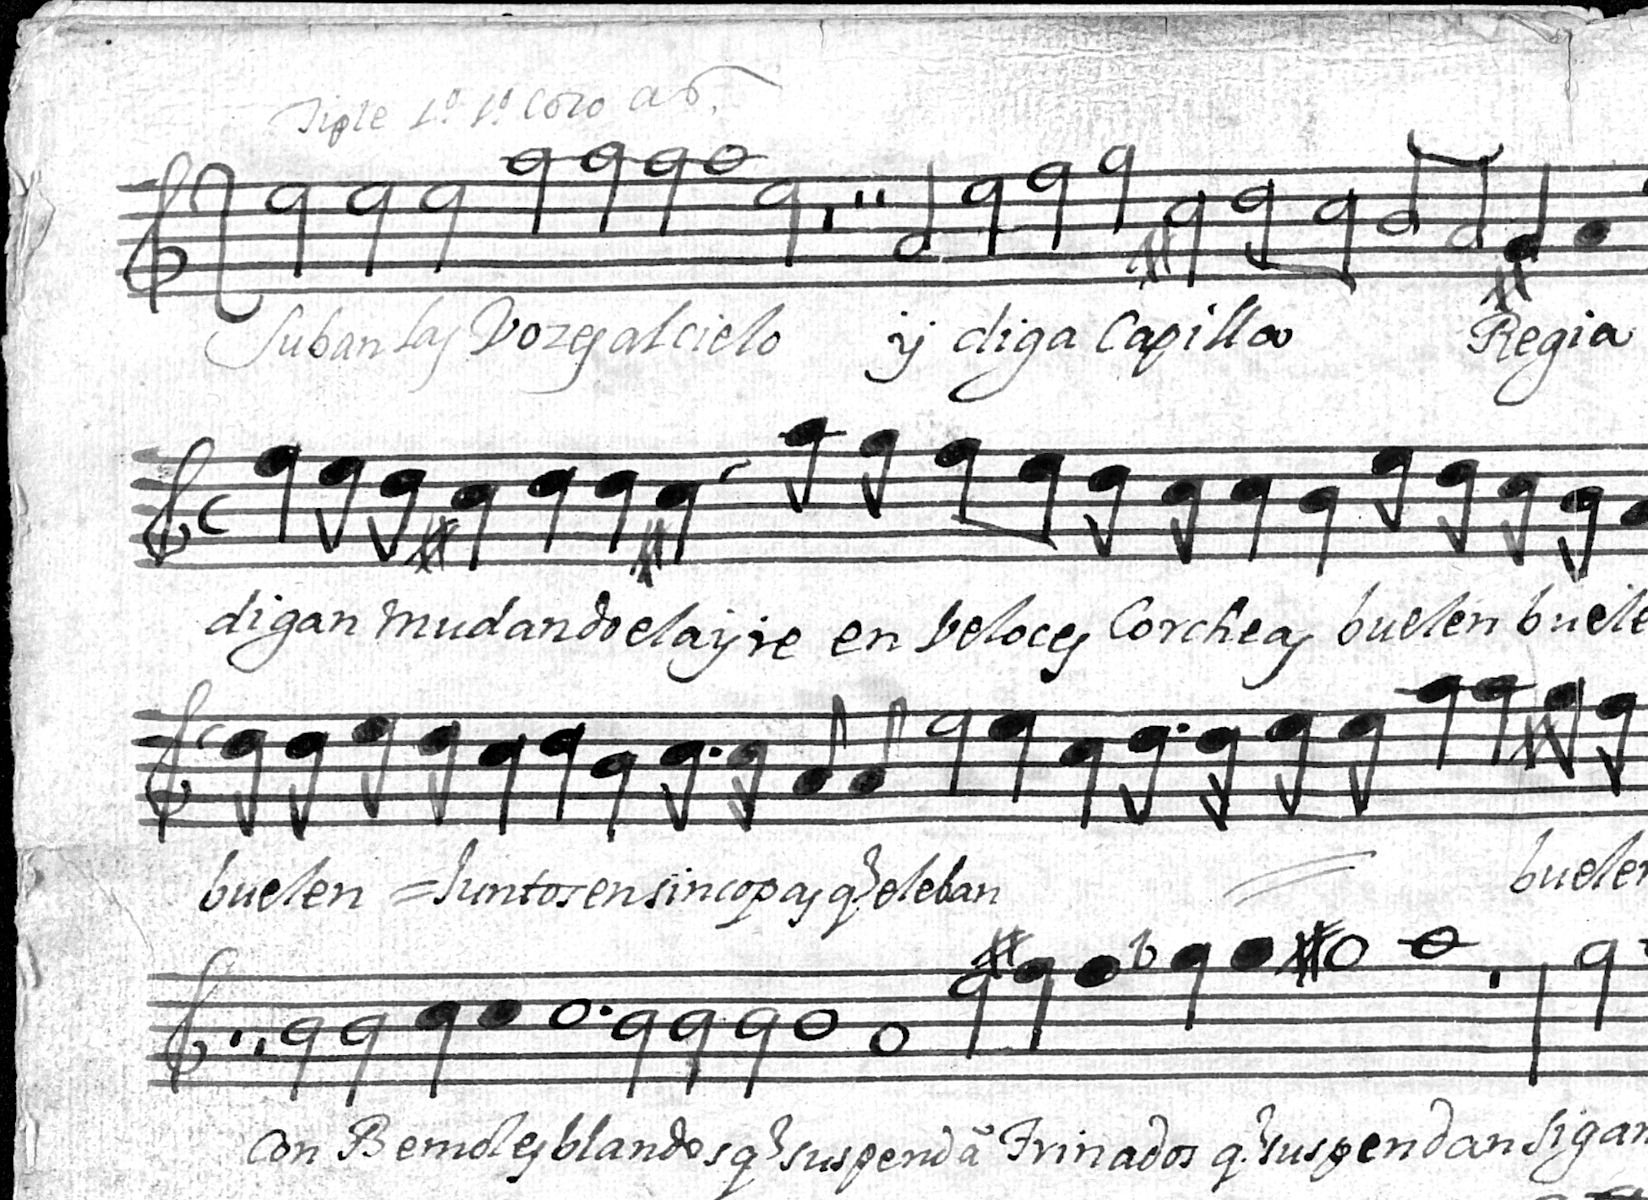 Tiple 1º 1º Coro a 6.
Suban las Vozes al cielo y diga Capilla Regia
digan mudando el ayre en Veloces Corcheas buelen buele
buelen = Juntos en sincopas q.e eleban = buelen
Con Bemoles blandos q.e suspendã Trinados q.e suspendan sigan